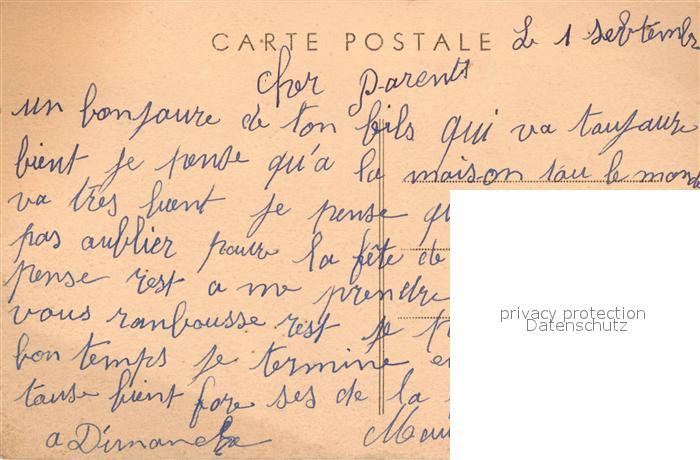 CARTE POSTALE
Le 1 septembr
Cher Parents
un bonjaure de ton fils qui va taujaure
bient je pense qu'a la maison tou le monde
va tres bient je pense qu
pas aublier pour la fête de
pense rest a me prendre
vous ranbousse rest je
bon temps je termine e
tause bient fore ses de la
a Dimanche
privacy protection
Datenschutz